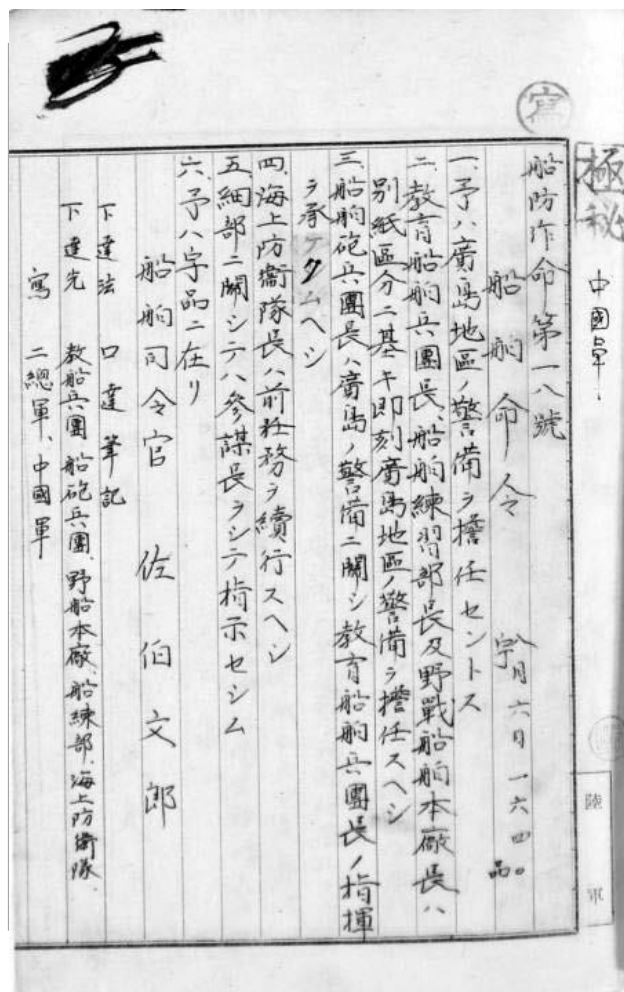 寫
極秘
中國軍
船防作命第一八號
船舶命令 八月六日一六四〇 宇品
一、予ハ廣島地區ノ警備ヲ擔任セントス
二、教育船舶兵團長、船舶練習部長及野戰船舶本廠長ハ
別紙區分ニ基キ即刻廣島地區ノ警備ヲ擔任スヘシ
三、船舶砲兵團長ハ廣島ノ警備ニ關シ教育船舶兵團長ノ指揮
ヲ承ケシムヘシ
四、海上防衞隊長ハ前任務ヲ續行スヘシ
五、細部ニ關シテハ參謀長ヲシテ指示セシム
六、予ハ宇品ニ在リ
船舶司令官 佐伯文郎
下達法 口達筆記
下達先 教船兵團、船砲兵團、野船本廠、船練部、海上防衞隊、
寫 二總軍、中國軍
陸軍